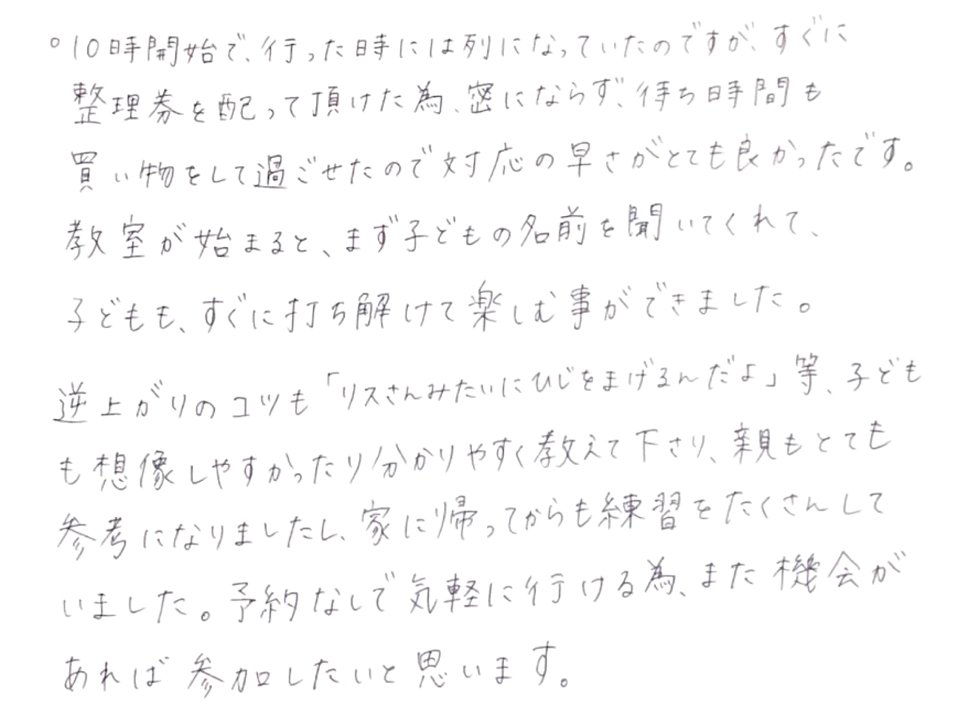 。10時開始で、行った時には列になっていたのですが、すぐに
整理券を配って頂けた為、密にならず、待ち時間も
買い物をして過ごせたので対応の早さがとても良かったです。
教室が始まると、まず子どもの名前を聞いてくれて、
子どもも、すぐに打ち解けて楽しむ事ができました。
逆上がりのコツも「リスさんみたいにひじをまげるんだよ」等、子ども
も想像しやすかったり分かりやすく教えて下さり、親もとても
参考になりましたし、家に帰ってからも練習をたくさんして
いました。予約なしで気軽に行ける為、また機会が
あれば参加したいと思います。